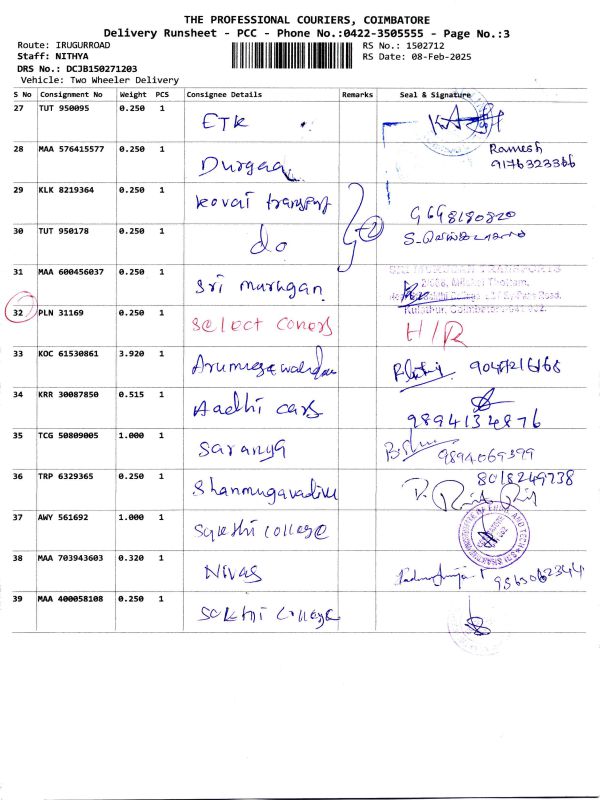 THE PROFESSIONAL COURIERS, COIMBATORE
Delivery Runsheet - PCC - Phone No.:0422-3505555 - Page No.:3
Route: IRUGURROAD RS No.: 1502712
Staff: NITHYA RS Date: 08-Feb-2025
DRS No.: DCJB150271203
Vehicle: Two Wheeler Delivery
S No Consignment No Weight PCS Consignee Details Remarks Seal & Signature
27 TUT 950095 0.250 1 ETK
28 MAA 576415577 0.250 1 Durgaa Ramesh
9176323366
29 KLK 8219364 0.250 1 kovai transport
30 TUT 950178 0.250 1 do
31 MAA 600456037 0.250 1 Sri murugan
32 PLN 31169 0.250 1 Select Covers H/R
33 KOC 61530861 3.920 1
34 KRR 30087850 0.515 1 Aadhi cars 9894134876
35 TCG 50809005 1.000 1 Saranya 9894069399
36 TRP 6329365 0.250 1 Shanmugavadivu 8018249738
37 AWY 561692 1.000 1 Sakthi College
38 MAA 703943603 0.320 1 Nivas
39 MAA 400058108 0.250 1 Sakthi College